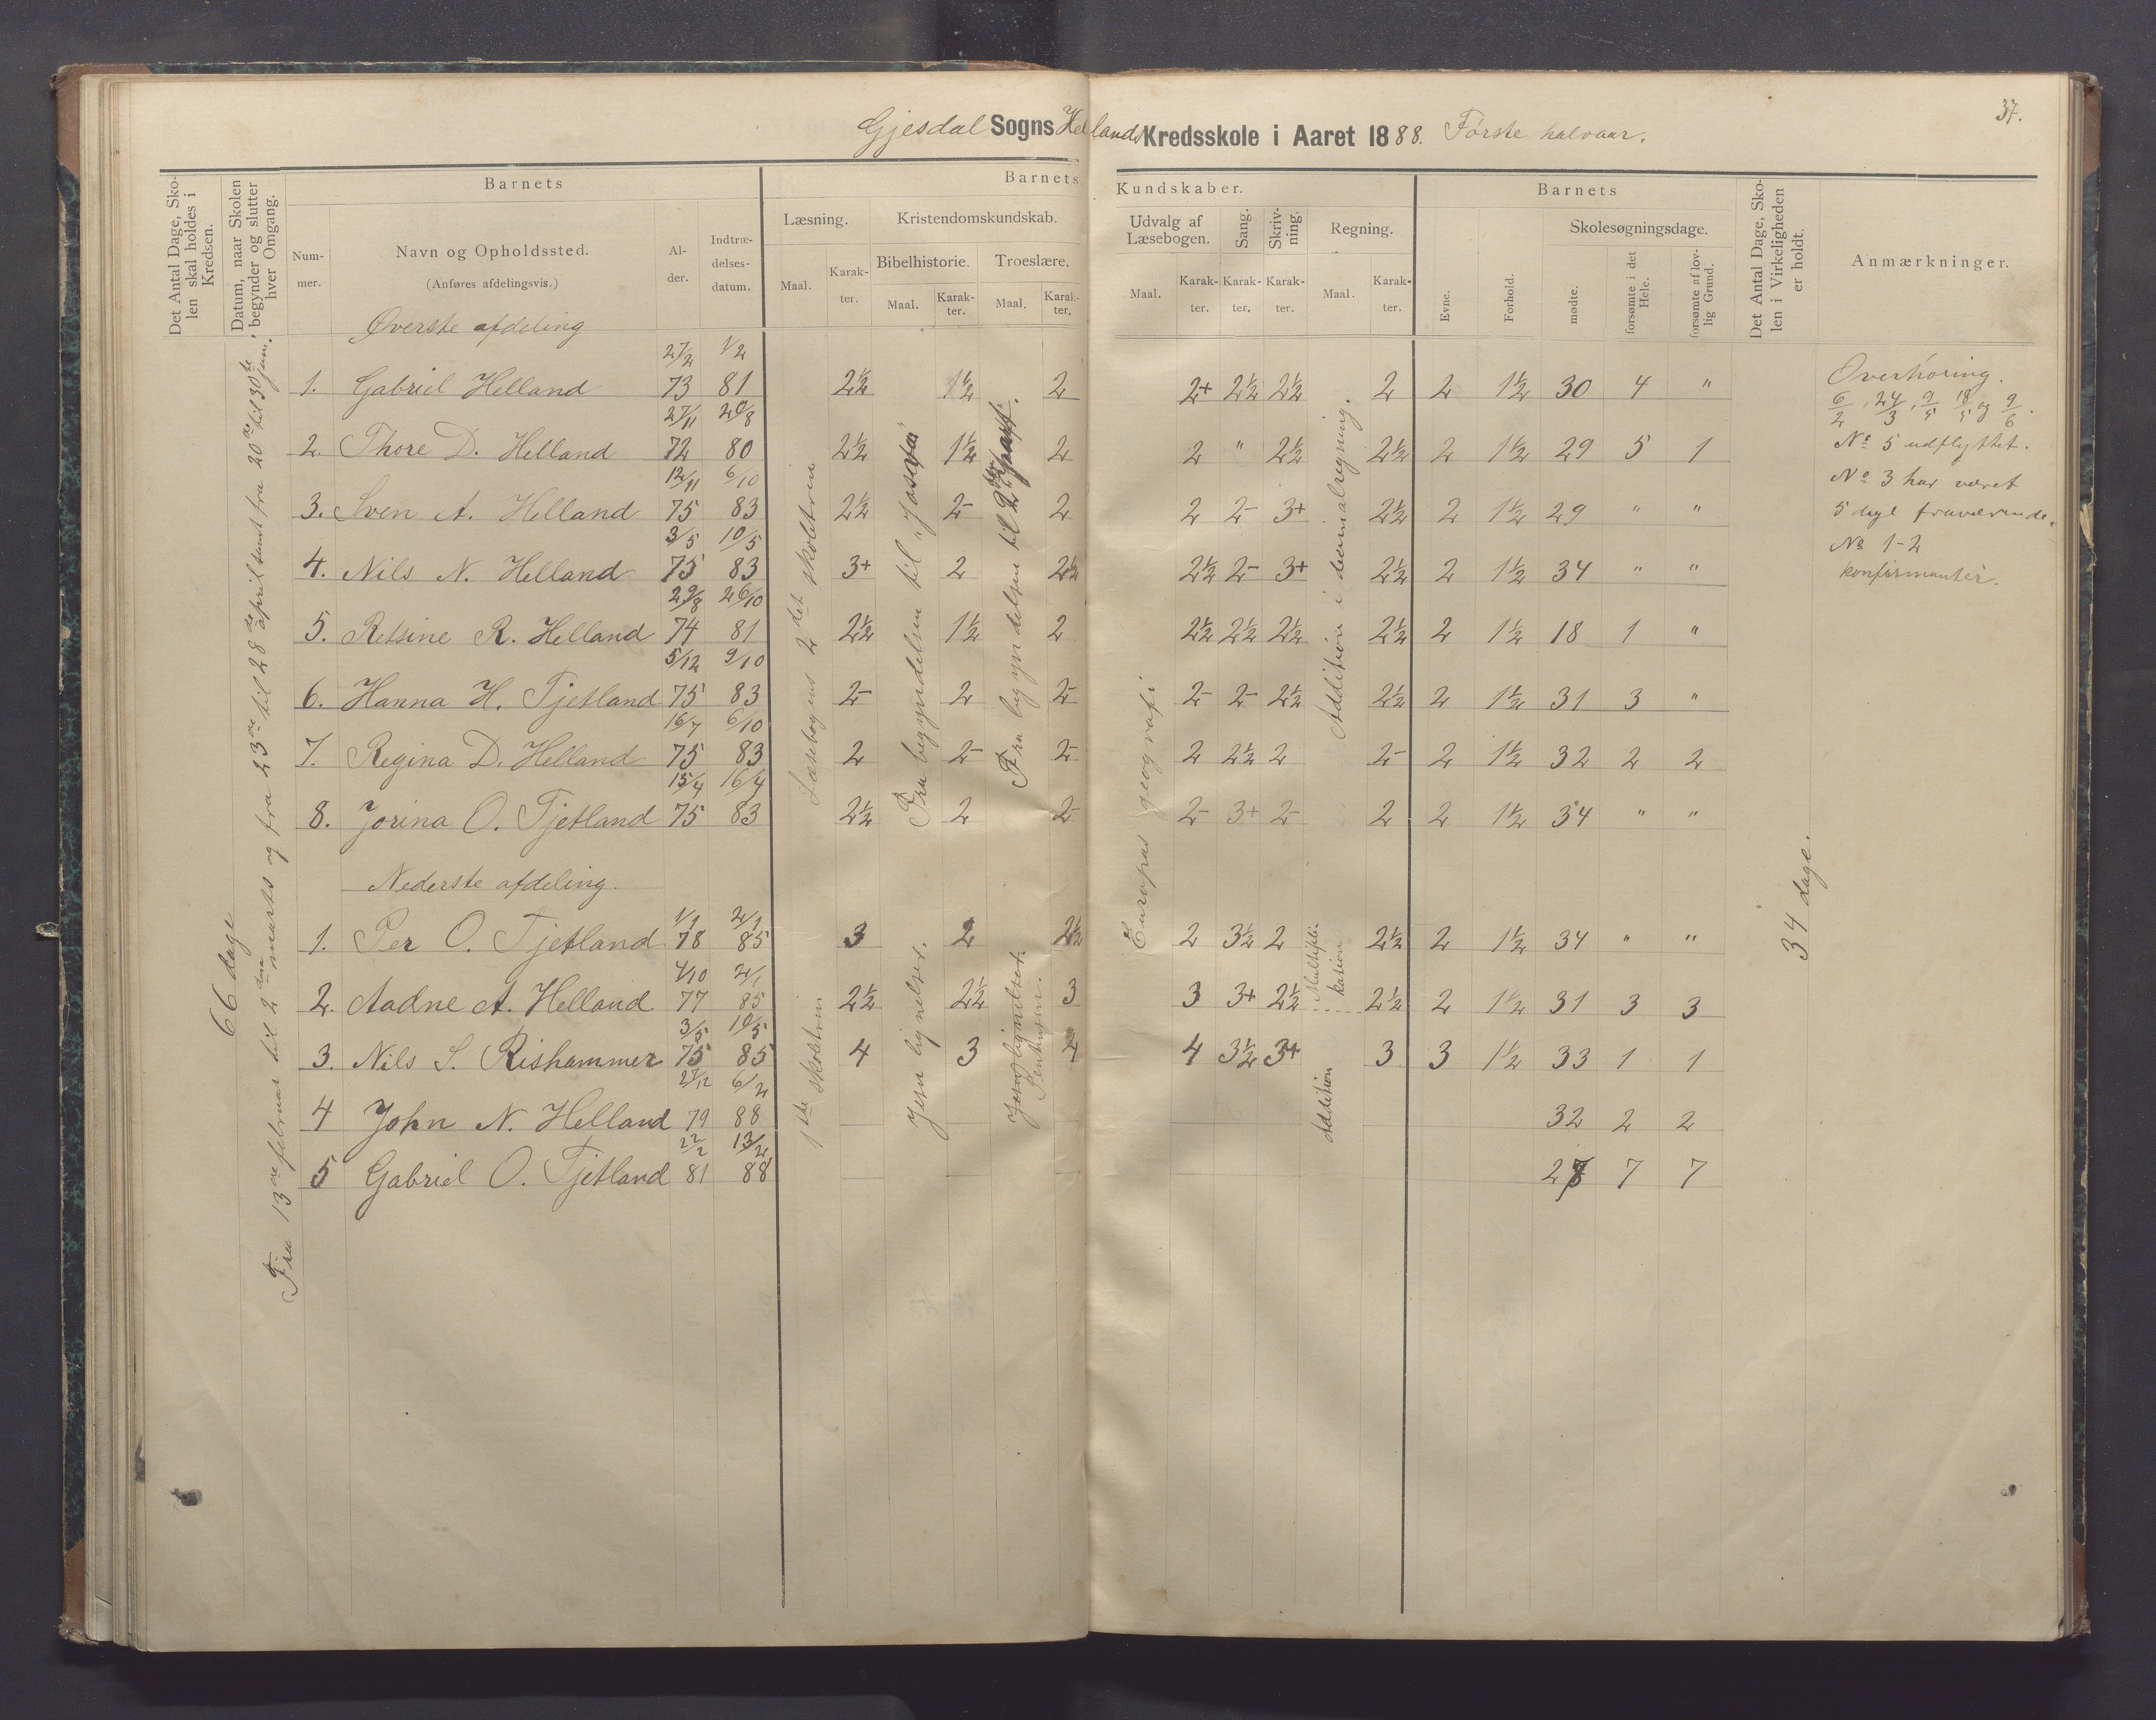 37.
Gjesdal Sogns Hellands Kredsskole i Aaret 1888. Første halvaar.
Det Antal Dage, Skolen skal holdes i Kredsen.
Datum, naar Skolen begynder og slutter hver Omgang.
Barnets
Barnets Kundskaber.
Barnets
Det Antal Dage, Skolen i Virkeligheden er holdt.
Anmærkninger.
Nummer.
Navn og Opholdssted.
(Anføres afdelingsvis.)
Alder.
Indtrædelsesdatum.
Læsning.
Kristendomskundskab.
Udvalg af Læsebogen.
Sang.
Skrivning.
Regning.
Evne.
Forhold.
Skolesøgningsdage.
Bibelhistorie.
Troeslære.
Maal. Karakter. Maal. Karakter. Maal. Karakter. Maal. Karakter. Karakter. Karakter. Maal. Karakter.
mødte.
forsømte i det Hele.
forsømte af lovlig Grund.
66 dage
Fra 13de februar til 2den marts og fra 23de til 28de april samt fra 20de til 30te juni.
Øverste afdeling
1. Gabriel Helland 27/2 73 1/2 81 2½ 1½ 2 2+ 2½ 2½ 2 2 1½ 30 4 "
2. Thore D. Helland 27/11 72 20/8 80 2½ 1½ 2 2 " 2½ 2½ 2 1½ 29 5 1
3. Sven A. Helland 12/11 75 6/10 83 2½ 2- 2 2 2- 3+ 2½ 2 1½ 29 " "
4. Nils N. Helland 3/5 75 10/5 83 3+ 2 2½ 2½ 2- 3+ 2½ 2 1½ 34 " "
5. Retsine R. Helland 29/8 74 26/10 81 2½ 1½ 2 2½ 2½ 2½ 2½ 2 1½ 18 1 "
6. Hanna H. Tjetland 5/12 75 9/10 83 2- 2 2- 2- 2- 2½ 2½ 2 1½ 31 3 "
7. Regina D. Helland 16/7 75 6/10 83 2 2- 2- 2 2½ 2 2- 2 1½ 32 2 2
8. Jorina O. Tjetland 15/4 75 16/4 83 2½ 2 2- 2- 3+ 2- 2 2 1½ 34 " "
Læsebogens 2det skoletrin
Fra begyndelsen til "Josefa"
Fra begyndelsen til 2den part.
Europas geografi
Addition i decimalregning.
Nederste afdeling.
1. Per O. Tjetland 1/1 78 2/1 85 3 2 2½ 2 3½ 2 2½ 2 1½ 34 " "
2. Aadne A. Helland 4/10 77 2/1 85 2½ 2½ 3 3 3+ 2½ 2½ 2 1½ 31 3 3
3. Nils S. Rishammer 3/5 75 10/5 85 4 3 4 4 3½ 3+ 3 3 1½ 33 1 1
4 John N. Helland 27/12 79 6/2 88 32 2 2
5 Gabriel O. Tjetland 22/2 81 13/2 88 27 7 7
1ste skoletrin
Jevn lignelset.
Jevn lignelset.
Multiplikation
Addition
34 dage.
Overhøring.
6/2, 24/3, 9/5, 18/5 og 9/6.
No 5 udflyttet.
No 3 har været
5 dage fraværende.
No 1-2
konfirmanter.